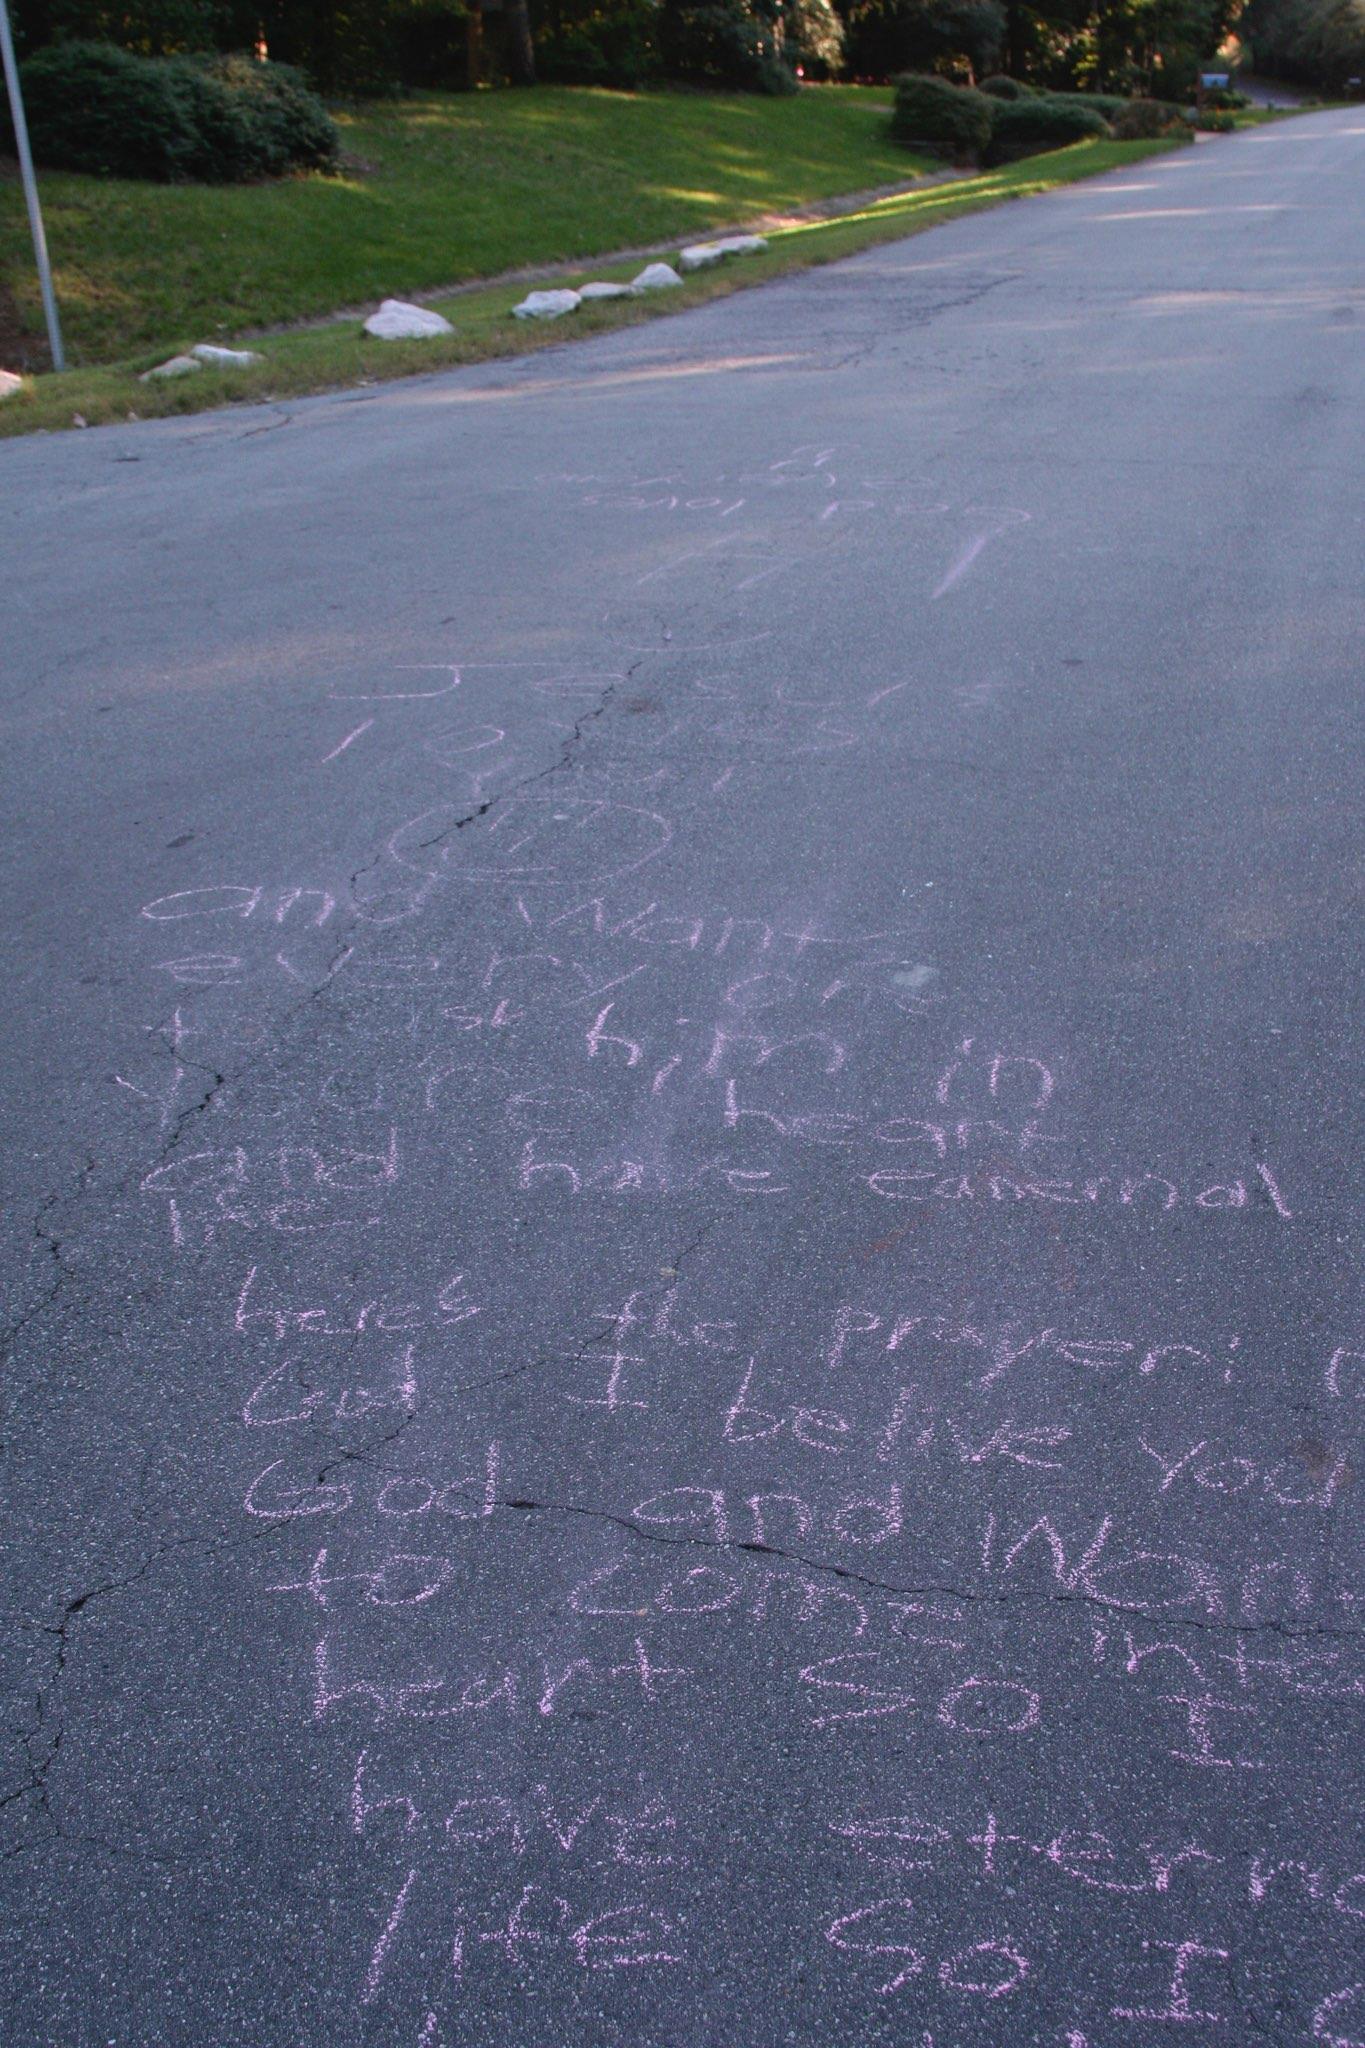 God loves
Jesus
loves
you
and want
every one
to ask him in
youre heart
and have
life
heres the prayer:
God I belive you
God and
to come into
heart so I
have
life so I